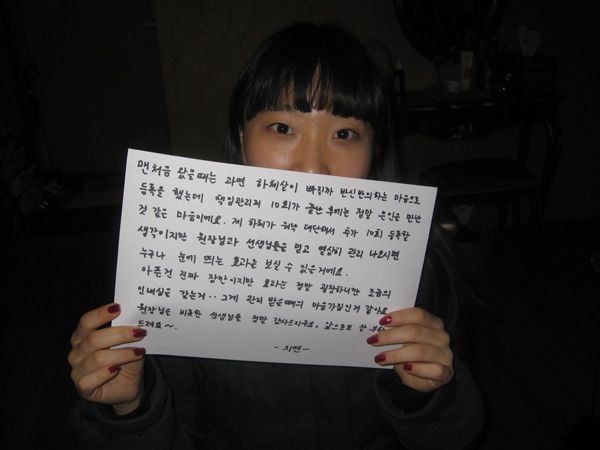 맨처음 왔을때는 과연 하체살이 빠질까 반신반의하는 마음으로
등록을 했는데 책임관리제 10회가 끝난 후에는 정말 은인을 만난
것 같은 마음이에요. 제 하체가 워낙 대단해서 추가 10회 등록할
생각이지만 원장님과 선생님들을 믿고 열심히 관리 나오시면
누구나 눈에 띄는 효과를 보실 수 있을거에요.
아픈건 진짜 장난이지만 효과는 정말 굉장하니깐 조금의
인내심을 갖는거.. 그게 관리 받을때의 마음가짐인거 같아요
원장님을 비롯한 선생님들 정말 감사드리구요, 앞으로도 잘 부탁
드려요~.
- 지연 -